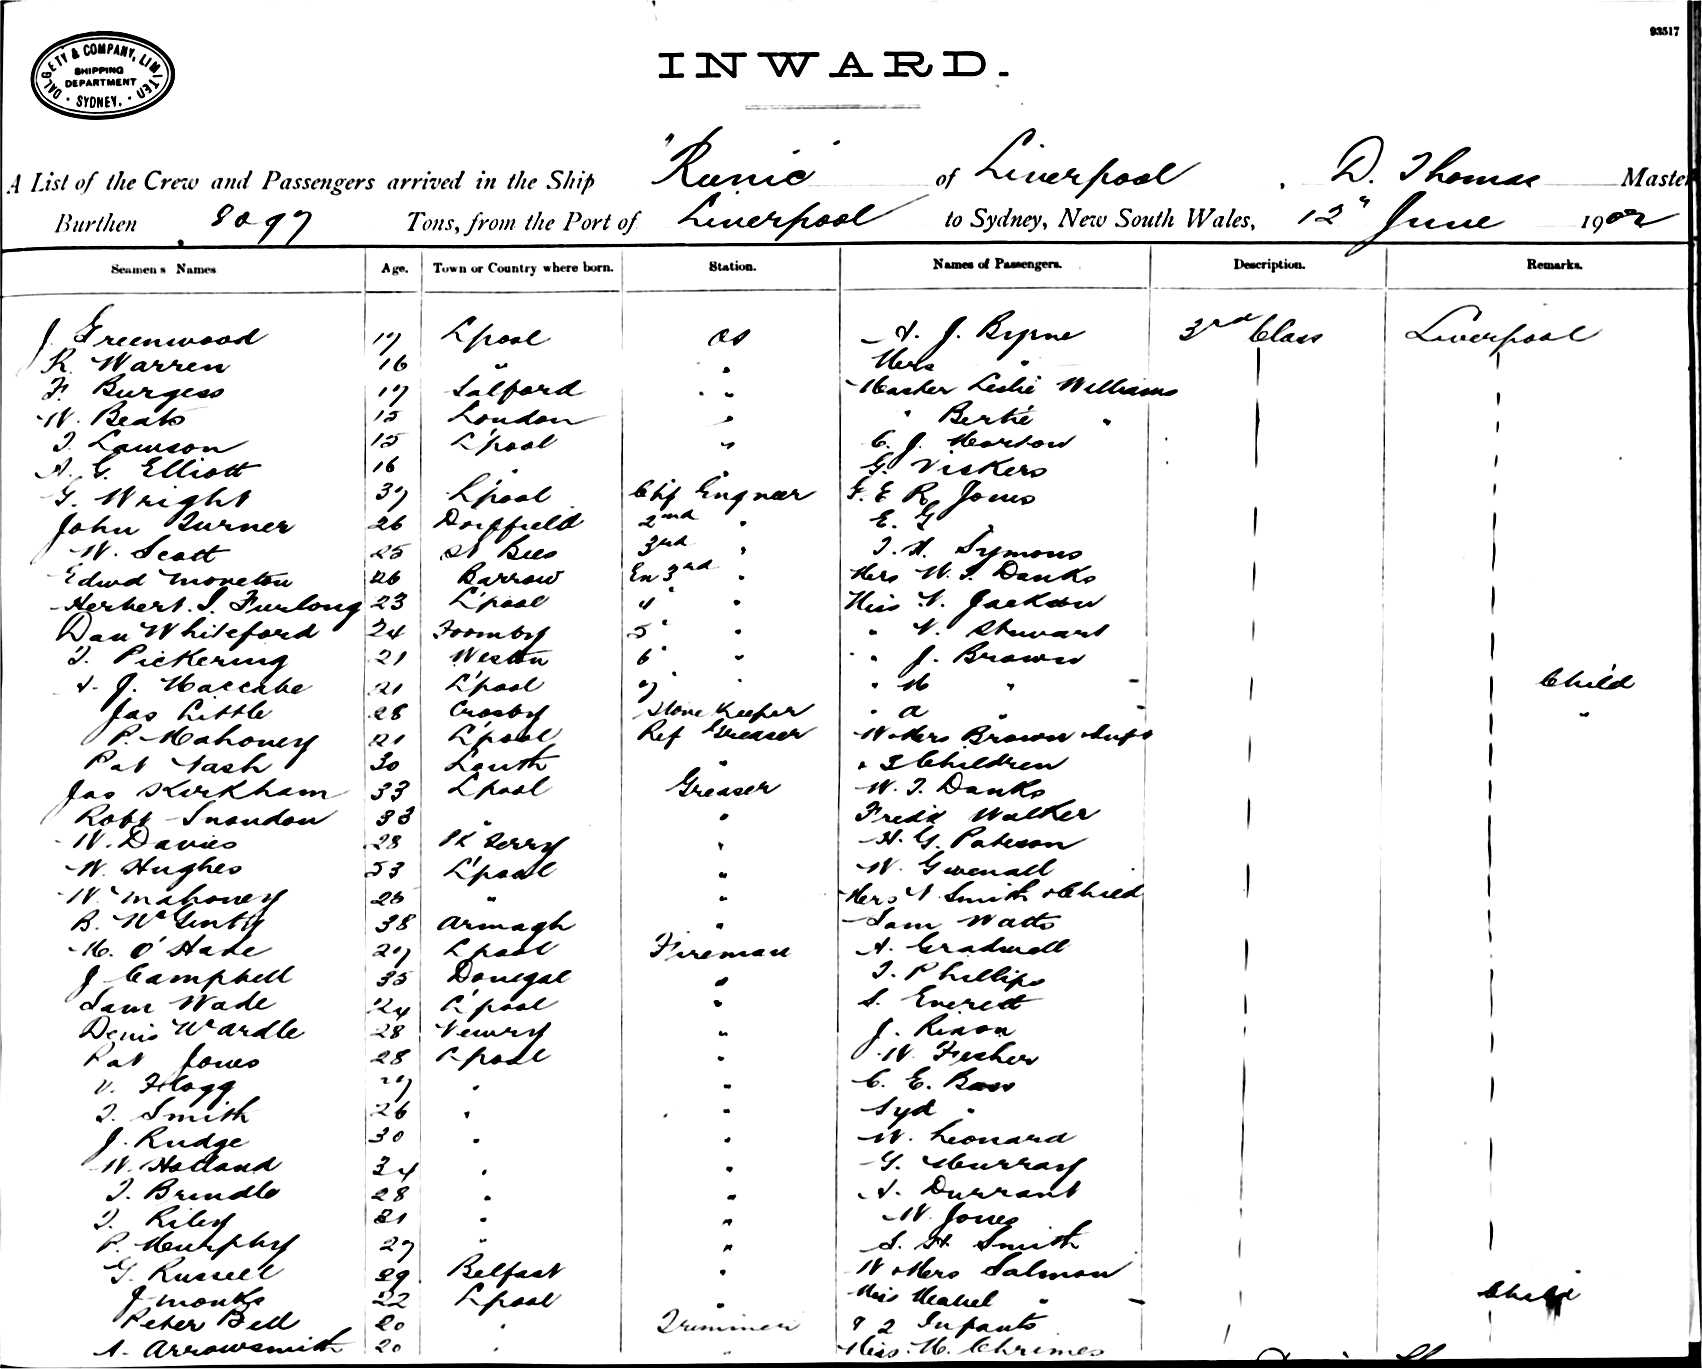 93517
DALGETY & COMPANY, LIMITED
SHIPPING
DEPARTMENT
SYDNEY.
INWARD.
A List of the Crew and Passengers arrived in the Ship "Runic" of Liverpool, D. Thomas Master
Burthen 8097 Tons, from the Port of Liverpool to Sydney, New South Wales, 12" June 1902
Seamens Names Age. Town or Country where born. Station. Names of Passengers. Description. Remarks.
J. Greenwood 17 L'pool OS A. J. Byrne 3rd Class Liverpool
R. Warren 16 " " Mrs "
F. Burgess 17 Salford " Master Leslie Williams
W. Beats 15 London " " Bertie "
T. Lawson 15 L'pool " C. J. Morton
A. G. Elliott 16 " " G. Vickers
G. Wright 37 L'pool Chf Engineer F. E. R. Jones
John Turner 26 Dorffield 2nd " E. G. "
W. Scott 25 St Bees 3rd " T. H. Symons
Edwd Moneton 26 Barrow Ex 3rd " Mrs W. T. Danks
Herbert. J. Furlong 23 L'pool 4" " Miss N. Jackson
Dan Whiteford 24 Formby 5" " " N. Stewart
T. Pickering 21 Weston 6" " " J. Brown
A. J. Maccabe 21 L'pool 7" " " M " Child
Jas Little 28 Crosby Store Keeper " A " "
P. Mahoney 21 L'pool Ref Greaser W & Mrs Brown Inft
Pat Nash 30 Louth " " 3 Children
Jas Kirkham 33 L'pool Greaser W. T. Danks
Robt Snondon 33 " " Fredk Walker
W. Davies 28 Rk Ferry " H. G. Pateson
W. Hughes 53 L'pool " W. Gwenall
W. Mahoney 26 " " Mrs N Smith & Child
B. McGinty 38 Armagh " Sam Watts
M. O'Hade 27 L'pool Fireman A. Gradwell
J. Campbell 35 Donegal " T. Phillips
Sam Wade 24 L'pool " S. Everett
Denis Wardle 28 Newry " J. Rixon
Pat Jones 28 L'pool " W. Fisher
V. Flogg 27 " " C. E. Bass
T. Smith 26 " " Syd "
J. Rudge 30 " " W. Leonard
W. Holland 34 " " G. Murray
T. Brindle 28 " " A. Durrant
T. Riley 21 " " W. Jones
P. Murphy 27 " " S. H. Smith
G. Russell 29 Belfast " W & Mrs Salmon
J Monks 22 L'pool " Miss Meahel " Child
Peter Bell 20 " Trimmer & 2 Infants
A. Arrowsmith 20 " " Miss. M. Chrimes